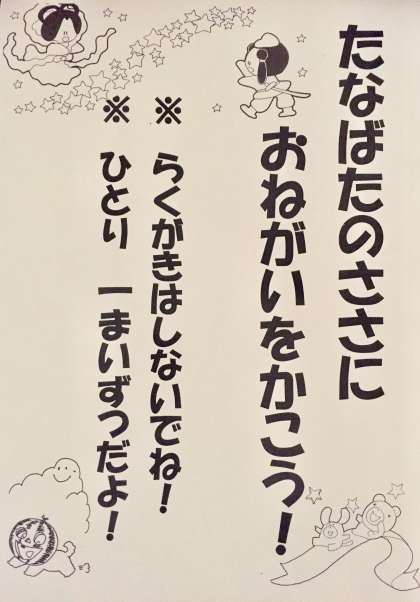 たなばたのささに
おねがいをかこう！
※　らくがきはしないでね！
※　ひとり　一まいずつだよ！